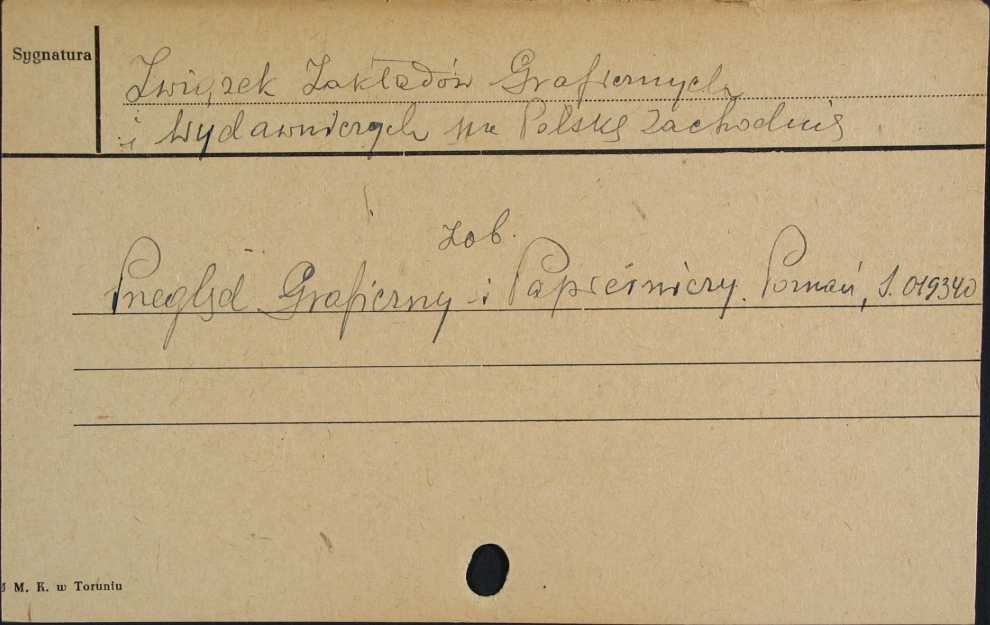 Sygnatura
Związek Zakładów Graficznych
i Wydawniczych na Polskę Zachodnią
zob.
Przegląd Graficzny i Papierniczy. Poznań, S. 019340
M. K. w Toruniu